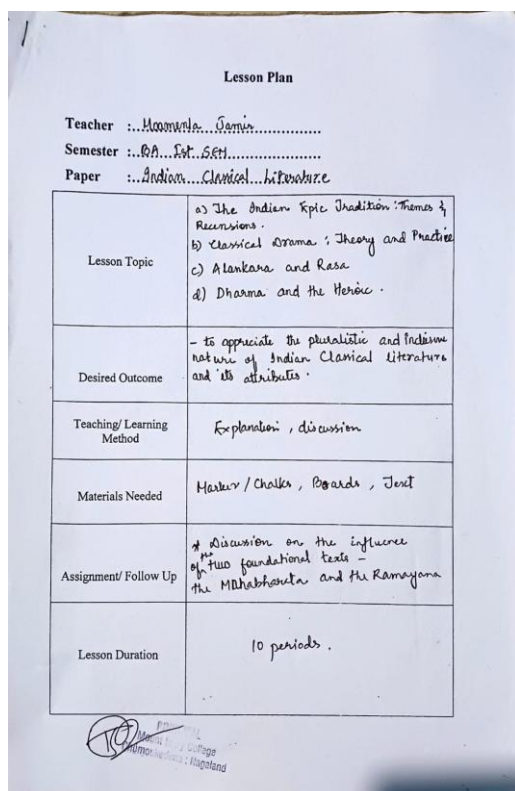 Lesson Plan
Teacher :..Moamenla Jamir
Semester :..BA Ist SEM
Paper :..Indian Classical Literature
Lesson Topic
a) The Indian Epic Tradition : Themes &
Recensions.
b) Classical Drama : Theory and Practice
c) Alankara and Rasa
d) Dharma and the Heroic .
Desired Outcome
- to appreciate the pluralistic and inclusive
nature of Indian Classical literature
and its attributes.
Teaching/ Learning
Method
Explanation , discussion
Materials Needed
Marker / Chalks , Boards , Text
Assignment/ Follow Up
* Discussion on the influence
of the two foundational texts -
the Mahabharata and the Ramayana
Lesson Duration
10 periods .
PRINCIPAL
Mount Mary College
Nagaland